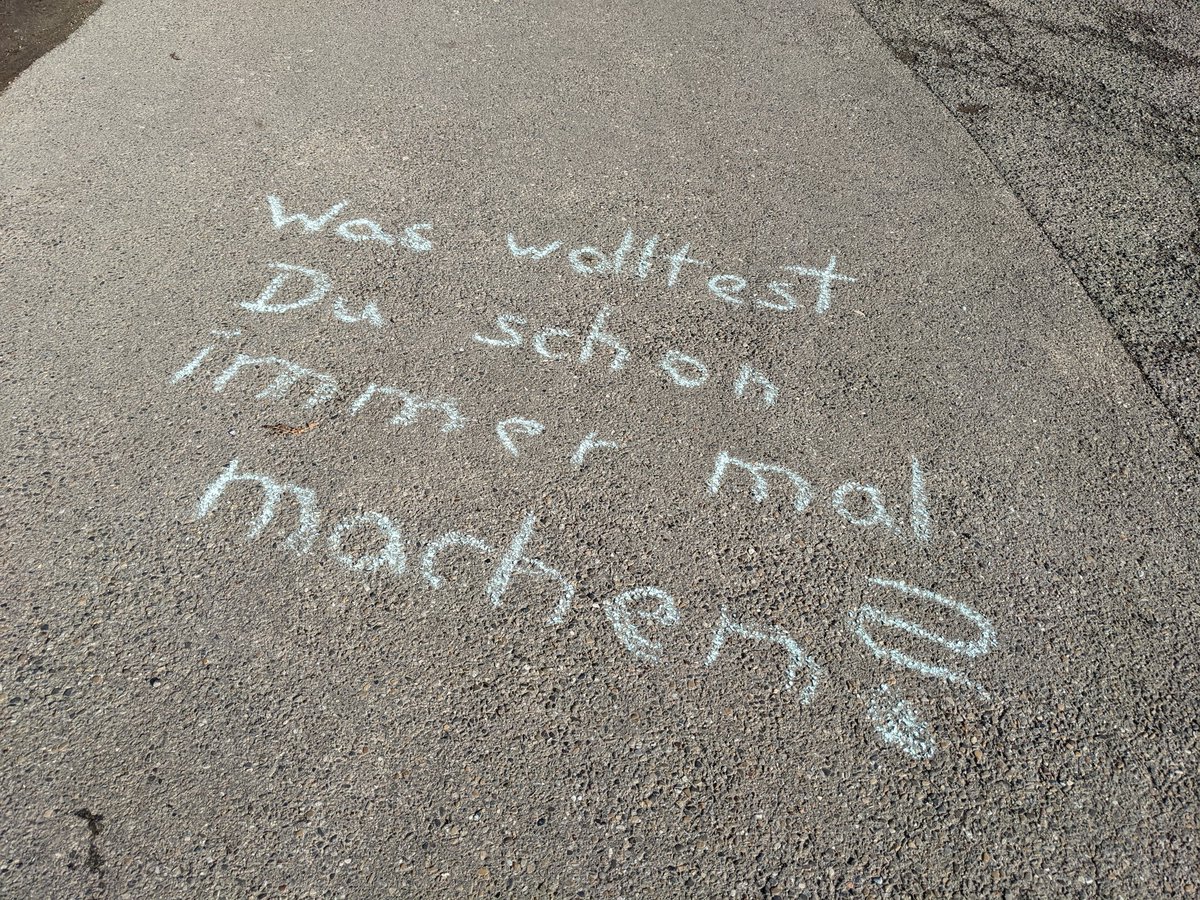 Was wolltest
Du schon
immer mal
machen?